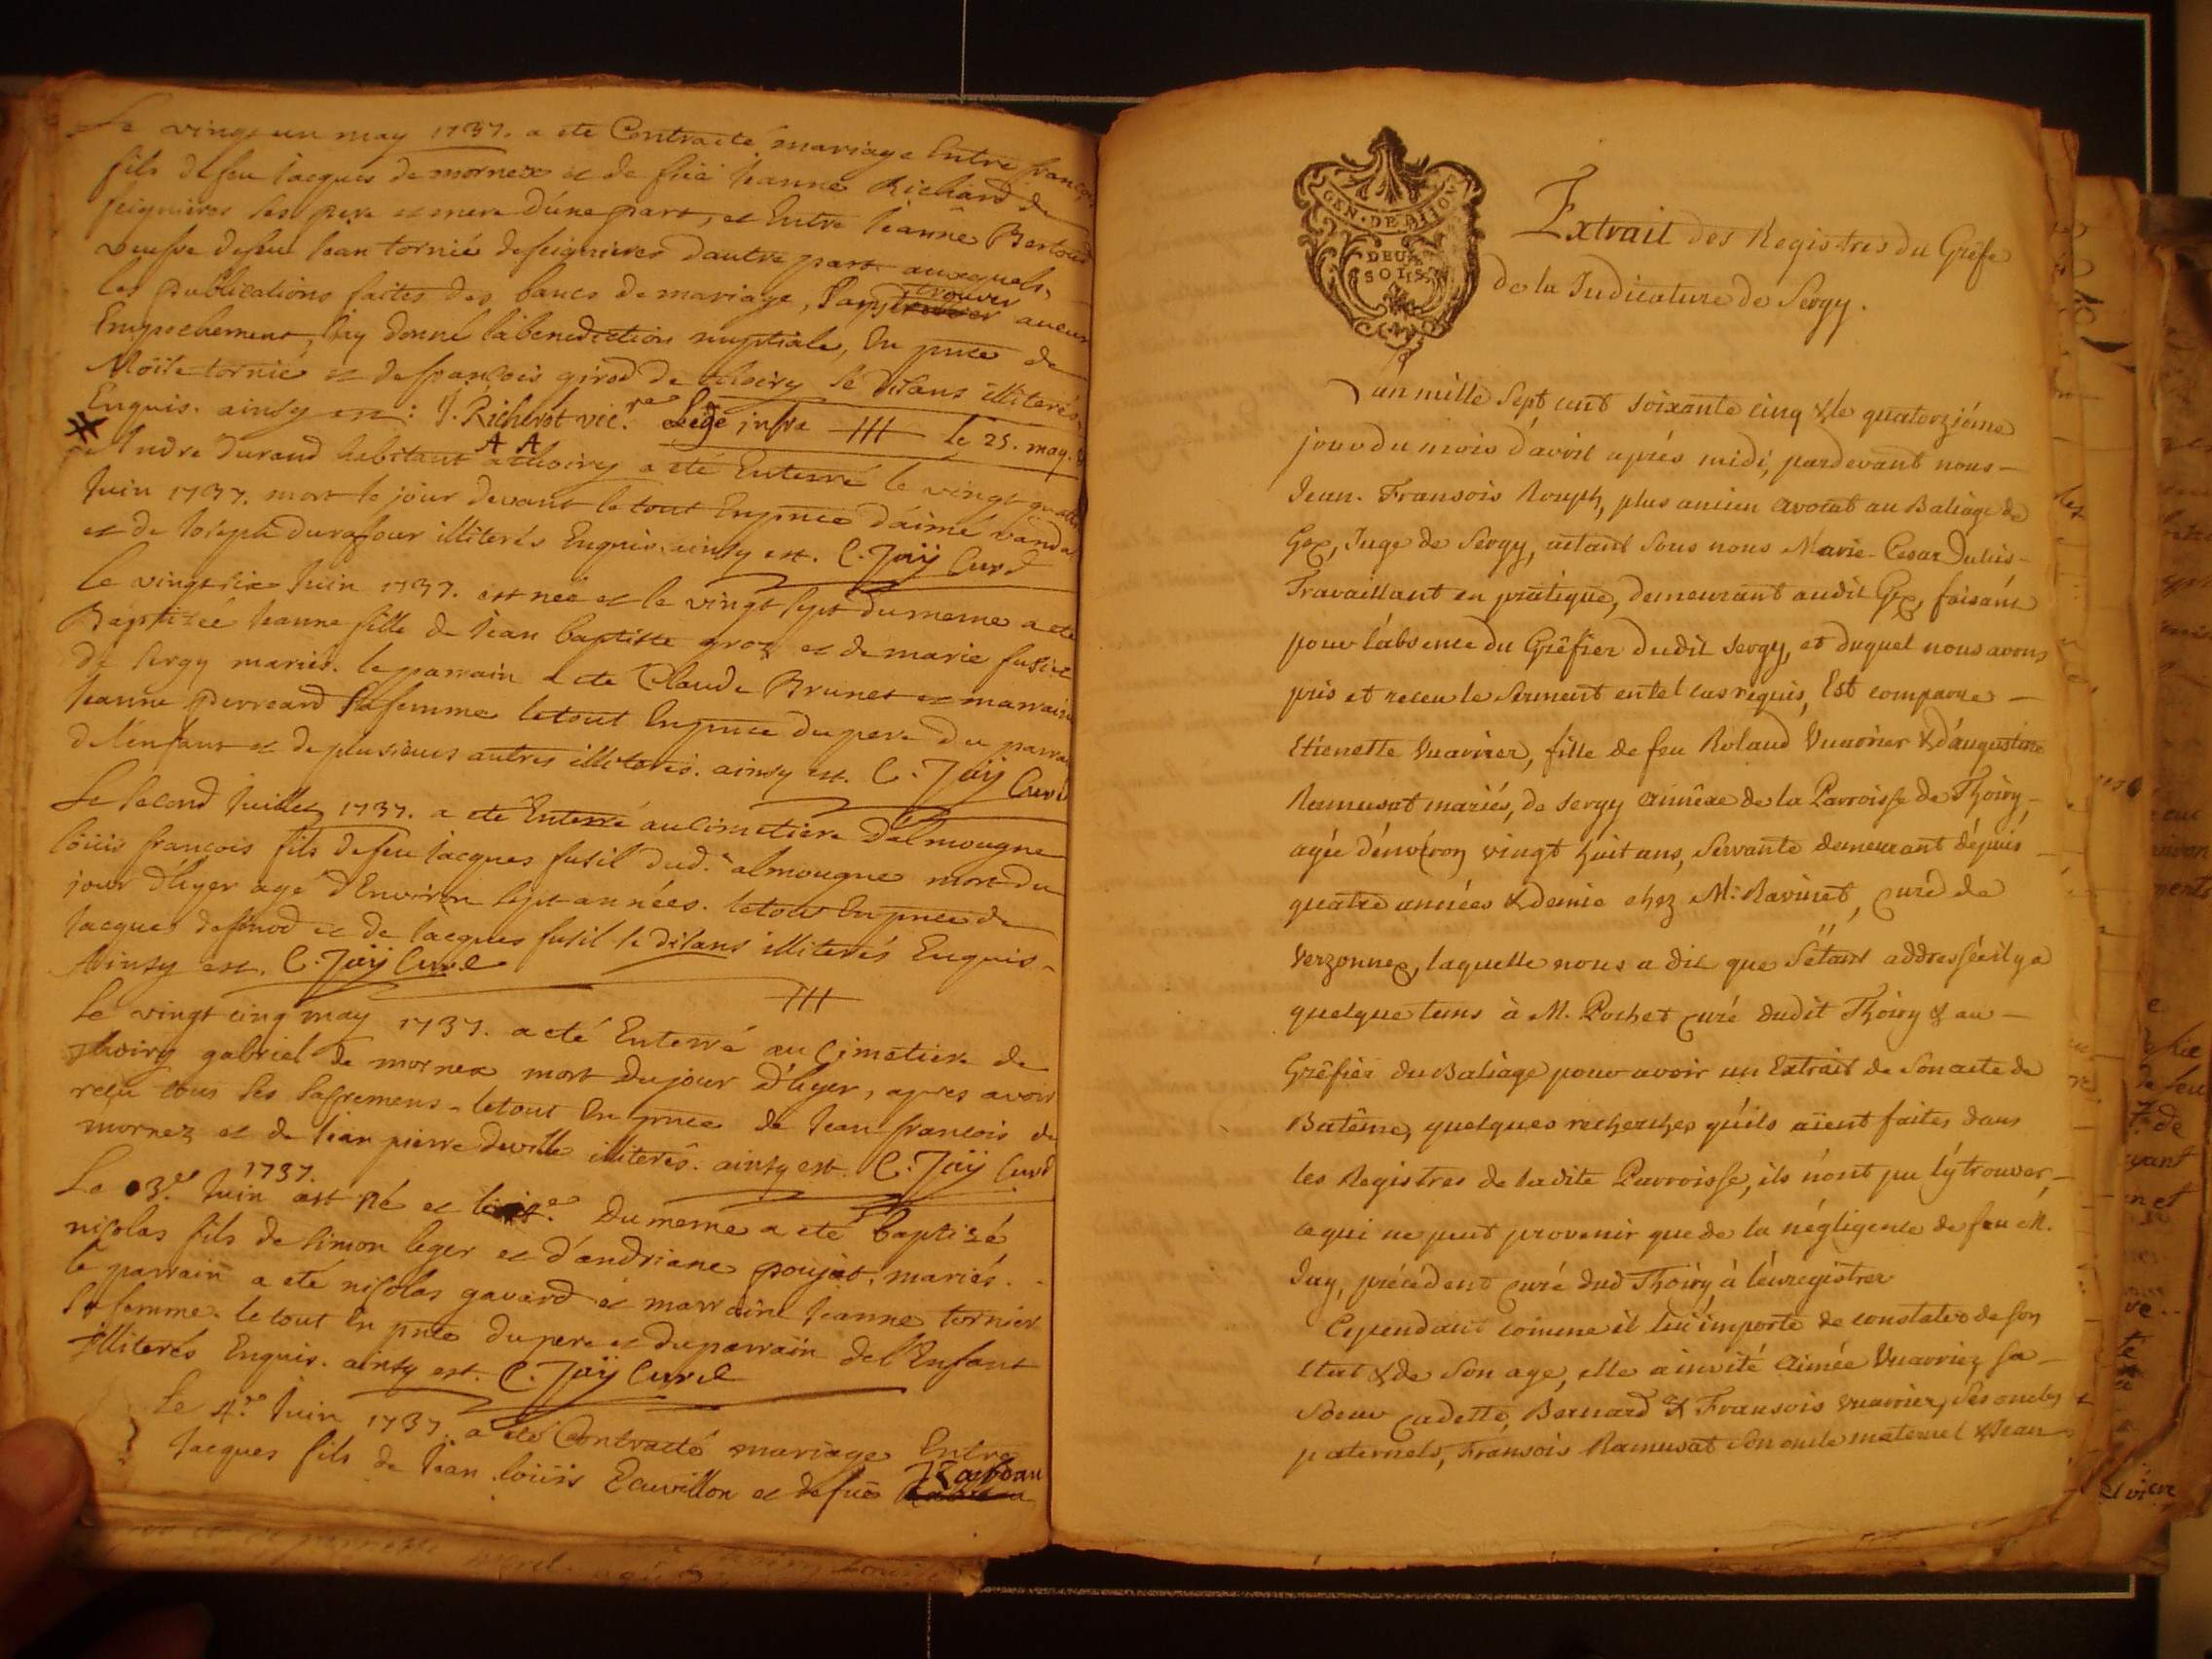 Le vingt un may 1737. a ete Contracté mariage Entre françois
fils de feu jacques de mornex et de fûe jeanne Richard de
feignieres ses pere et mere d'une part, et Entre jeanne Bertoud
veufve de feu jean tornié de feignieres dautre part auxquels,
les publications faites des bancs de mariage, sans trouver aucun
Empechement, j'ay donné la benediction nuptiale, En pnce de
Moïse tornié et de françois girod de thoiry se disans illiterés
Enquis. ainsy est: J. Richerot vic.re Lege infra III le 25. may.
Andre Durand habitant a thoiry a eté Enterré le vingt quatre
A A
juin 1737. mort le jour devant le tout En pnce d'aimé
et de joseph durafour illiterés Enquis. ainsy est. C. Jaÿ Curé
Le vingt six juin 1737. est neé et le vingt sept du meme a ete
Baptizeé jeanne fille de jean baptiste groz et de marie fusier
de sergy mariés. le parrain a ete Claude Brunet et marraine
jeanne perreard sa femme le tout En pnce du pere du parrain
de l'enfant et de plusieurs autres illiterés. ainsy est. C. Jaÿ Curé
Le second juillet 1737. a eté Enterré au cimetiere d'almougne
loüis françois fils de feu jacques fusil dud. almougne mort du
jour d'hyer agé d'Environ sept années. le tout En pnce de
jacques et de jacques fusil se disans illiterés Enquis
Ainsy est. C. Jaÿ Curé
III
Le vingt cinq may 1737. a eté Enterré au Cimetiere de
thoiry gabriel de mornex mort du jour d'hyer, apres avoir
reçu tous les sacremens. le tout En pnce de jean françois de
mornex et de jean pierre deville illiterés. ainsy est. C. Jaÿ Curé
1737.
Le 3.e juin est né et le du meme a eté baptizé
nicolas fils de simon leger et d'andriane poujat, mariés.
le parrain a eté nicolas gavard et marraine jeanne tornier
sa femme. le tout En pnce du pere et du parrain de l'Enfant
illiterés Enquis. ainsy est. C. Jaÿ Curé
Le 4.e juin 1737. a eté Contracté mariage Entre
jacques fils de jean loüis Eauvillon et de füe
GEN. DE DIJON
DEUX
SOLS
Extrait des Registres du Grêfe
de la Judicature de Sergy.
L'an mille sept cent soixante cinq & le quatorziéme
jour du mois d'avril aprés midi, pardevant nous
Jean-Fransois Rouph, plus ancien avocat au Baliage de
Gex, Juge de Sergy, aïant sous nous Marie-Cesar Dulus
Travaillant en pratique, demeurant audit Gex, faisant
pour l'absence du Grêfier dudit Sergy, et duquel nous avons
pris et receu le serment en tel cas requis, Est comparue
Etienette Vuarrier, fille de feu Roland Vuarrier & d'augustine
Ramusat mariés, de Sergy annêxe de la Parroisse de Thoiry,
agée d'environ vingt huit ans, servante demeurant dépuis
quatre années & demie chez M.r Ravinet, curé de
Verzonnex, laquelle nous a dit que s'étant addressée il y a
quelque tems à M. Pochet curé dudit Thoiry & au
Grêfier du Baliage pour avoir un Extrait de son acte de
Batême, quelques recherches qu'ils aïent faites dans
les Registres de ladite Parroisse, ils n'ont pu l'ÿ trouver,
ce qui ne peut provenir que de la négligence de feu M.
Jay, précédent curé dud Thoiry, à l'énregistrer
Cependant comme il lui importe de constater de son
Etat & de son age, elle a invité aimée Vuarrier, sa
soeur cadette, Bernard & Fransois Vuarrier, ses oncles
paternels, Fransois Ramusat son oncle maternel & Jean